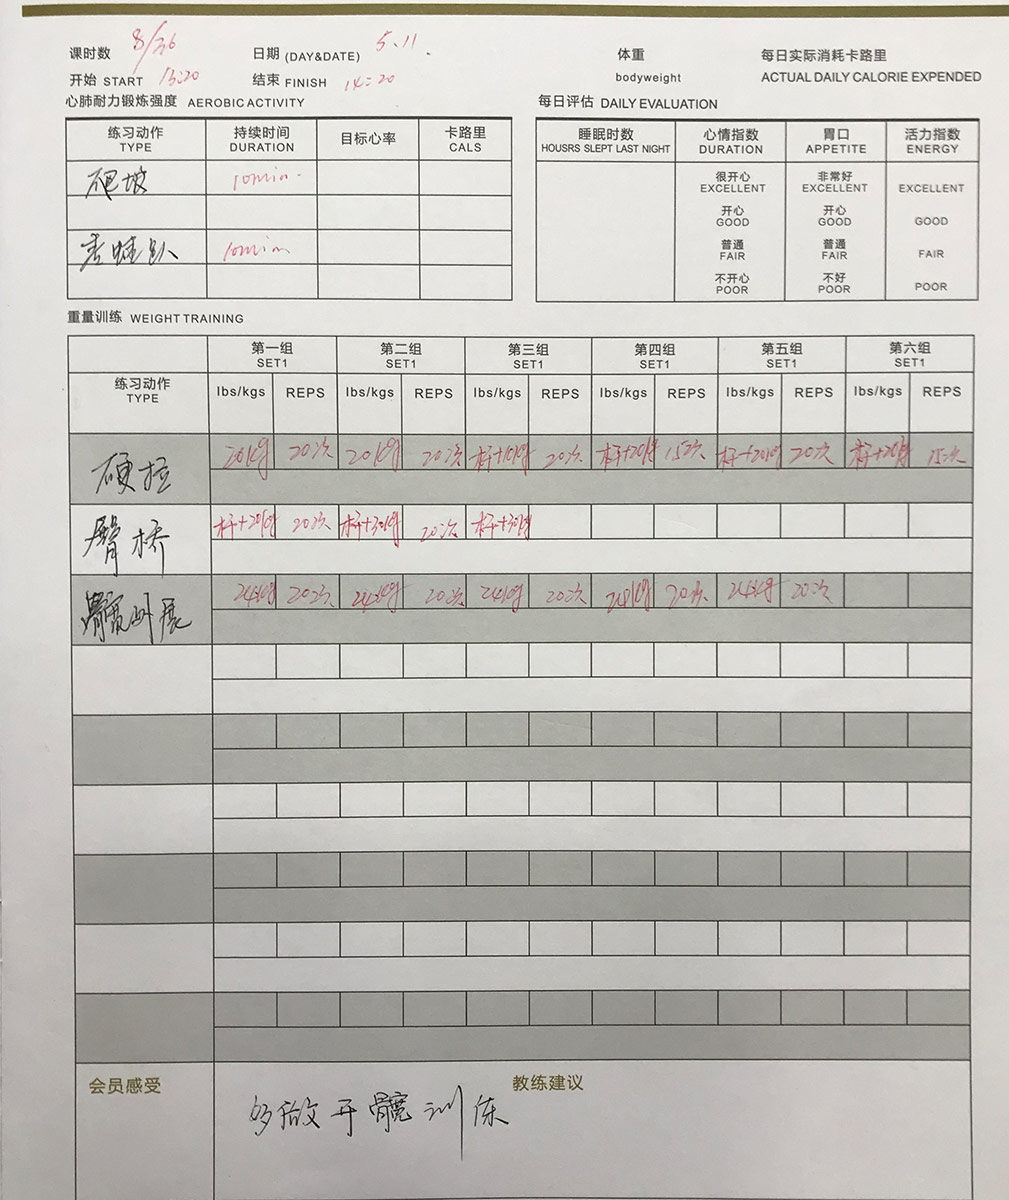 课时数 8/36 日期 (DAY&DATE) 5.11. 体重 每日实际消耗卡路里
开始 START 13:20 结束 FINISH 14:20 bodyweight ACTUAL DAILY CALORIE EXPENDED
心肺耐力锻炼强度 AEROBIC ACTIVITY 每日评估 DAILY EVALUATION
练习动作 持续时间 目标心率 卡路里 睡眠时数 心情指数 胃口 活力指数
TYPE DURATION CALS HOUSRS SLEPT LAST NIGHT DURATION APPETITE ENERGY
爬坡 10min. 很开心 非常好
EXCELLENT EXCELLENT EXCELLENT
开心 开心
GOOD GOOD GOOD
青蛙趴 10min 普通 普通
FAIR FAIR FAIR
不开心 不好
POOR POOR POOR
重量训练 WEIGHT TRAINING
第一组 第二组 第三组 第四组 第五组 第六组
SET1 SET1 SET1 SET1 SET1 SET1
练习动作 lbs/kgs REPS lbs/kgs REPS lbs/kgs REPS lbs/kgs REPS lbs/kgs REPS lbs/kgs REPS
TYPE
硬拉 20kg 20次 20kg 20次 杆+10kg 20次 杆+20kg 15次 杆+20kg 20次 杆+20kg 15次
臀桥 杆+20kg 20次 杆+30kg 20次 杆+30kg
髋外展 20次 20次 20次 20次 20次
会员感受 教练建议
多做开髋训练